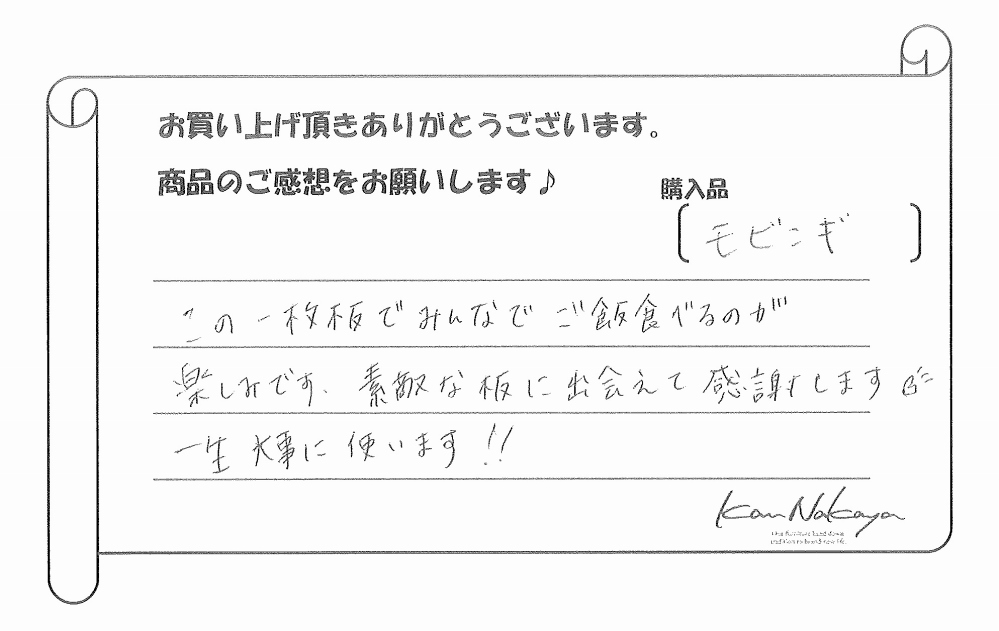 お買い上げ頂きありがとうございます。
商品のご感想をお願いします♪
購入品
〔モビンギ〕
この一枚板でみんなでご飯食べるのが
楽しみです、素敵な板に出会えて感謝します
一生大事に使います!!
Kan Nakaya